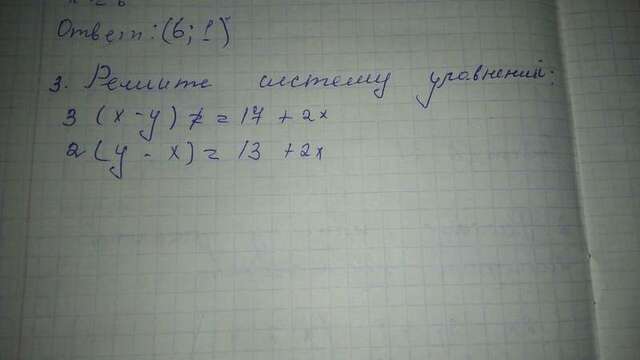 Ответ: (6; 1)
3. Решите систему уравнений:
3 (x - y) = 17 + 2x
2 (y - x) = 13 + 2x